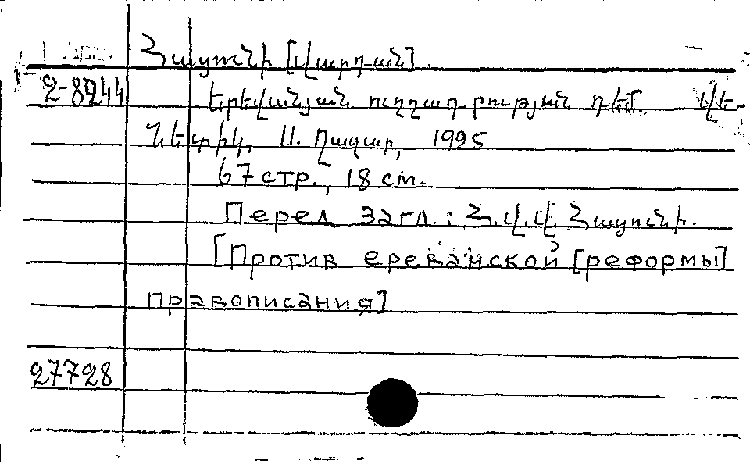 Հացունի [վարդան]
2-8244 Երեվանյան ուղղագրության դեմ. Վե-
նետիկ, Ս. Ղազար, 1925
67 стр., 18 см.
Перед загл.: Հ.Վ.Վ. Հացունի.
[Против ереванской [реформы]
правописания]
27728